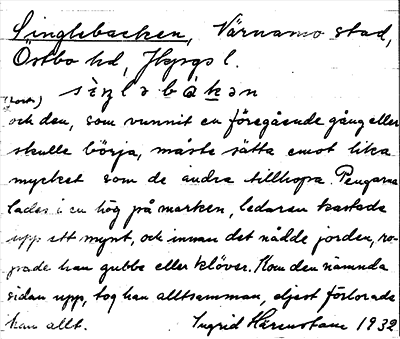 Singlebacken, Värnamo stad,
Östbo hd, Jkpgs l.
siŋləbakən
(forts.)
och den, som vunnit en föregående gång eller
skulle börja, måste sätta emot lika
mycket som de andra tillhopa. Pengarna
lades i en hög på marken, ledaren kastade
upp ett mynt, och innan det nådde jorden, ro-
pade han gubbe eller klöver. Kom den nämnda
sidan upp, tog han alltsamman, eljest förlorade
han allt. Ingrid 1932